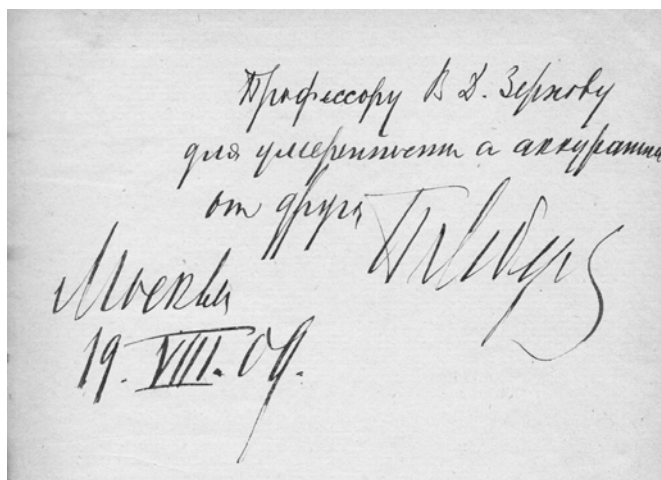 Профессору В Д. Зернову
для умеренности и аккуратн
от друга П Лебедев
Москва
19. VIII. 09.